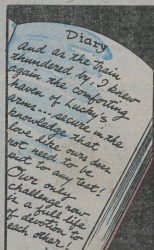 Diary
And as the train
thundered by, I knew
again the comforting
haven of Lucky's
arms.. secure in the
knowledge that
love like ours does
not need to be
put to any test!
Our only
challenge now
is a full life
of devotion to
each other!